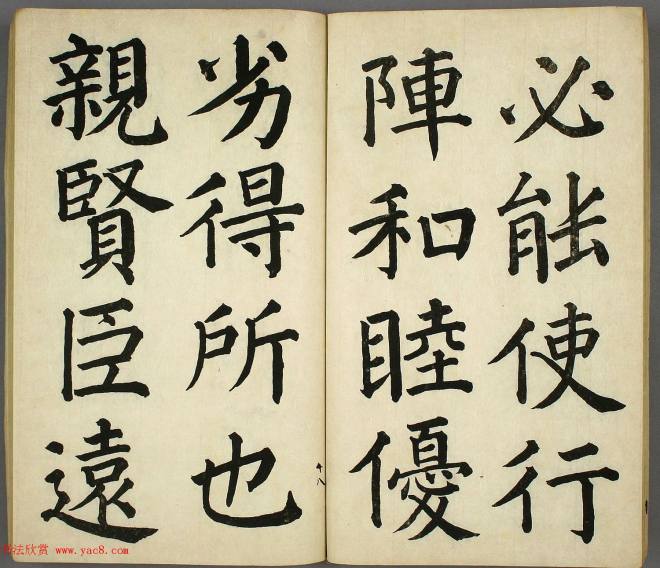 必能使行
陣和睦優
劣得所也
親賢臣遠
十八
法欣赏 www.yac8.com